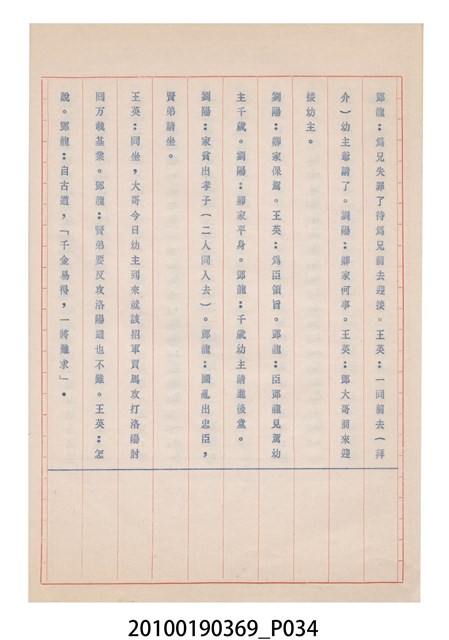 鄧龍：為兄失罪了待為兄前去迎接。王英：一同前去（拜
介）幼主爺請了。劉陽：鄉家何事。王英：鄧大哥前來迎
接幼主。
劉陽：鄉家保駕。王英：為臣領旨。鄧龍：臣鄧龍見駕幼
主千歲。劉陽：鄉家平身。鄧龍：千歲幼主請進後堂。
劉陽：家貧出孝子（二人同入去）。鄧龍：國亂出忠臣，
賢弟請坐。
王英：同坐，大哥今日幼主到來就該招軍買馬攻打洛陽討
回万載基業。鄧龍：賢弟要反攻洛陽這也不難。王英：怎
說。鄧龍：自古道，「千金易得，一將難求」。
20100190369_P034